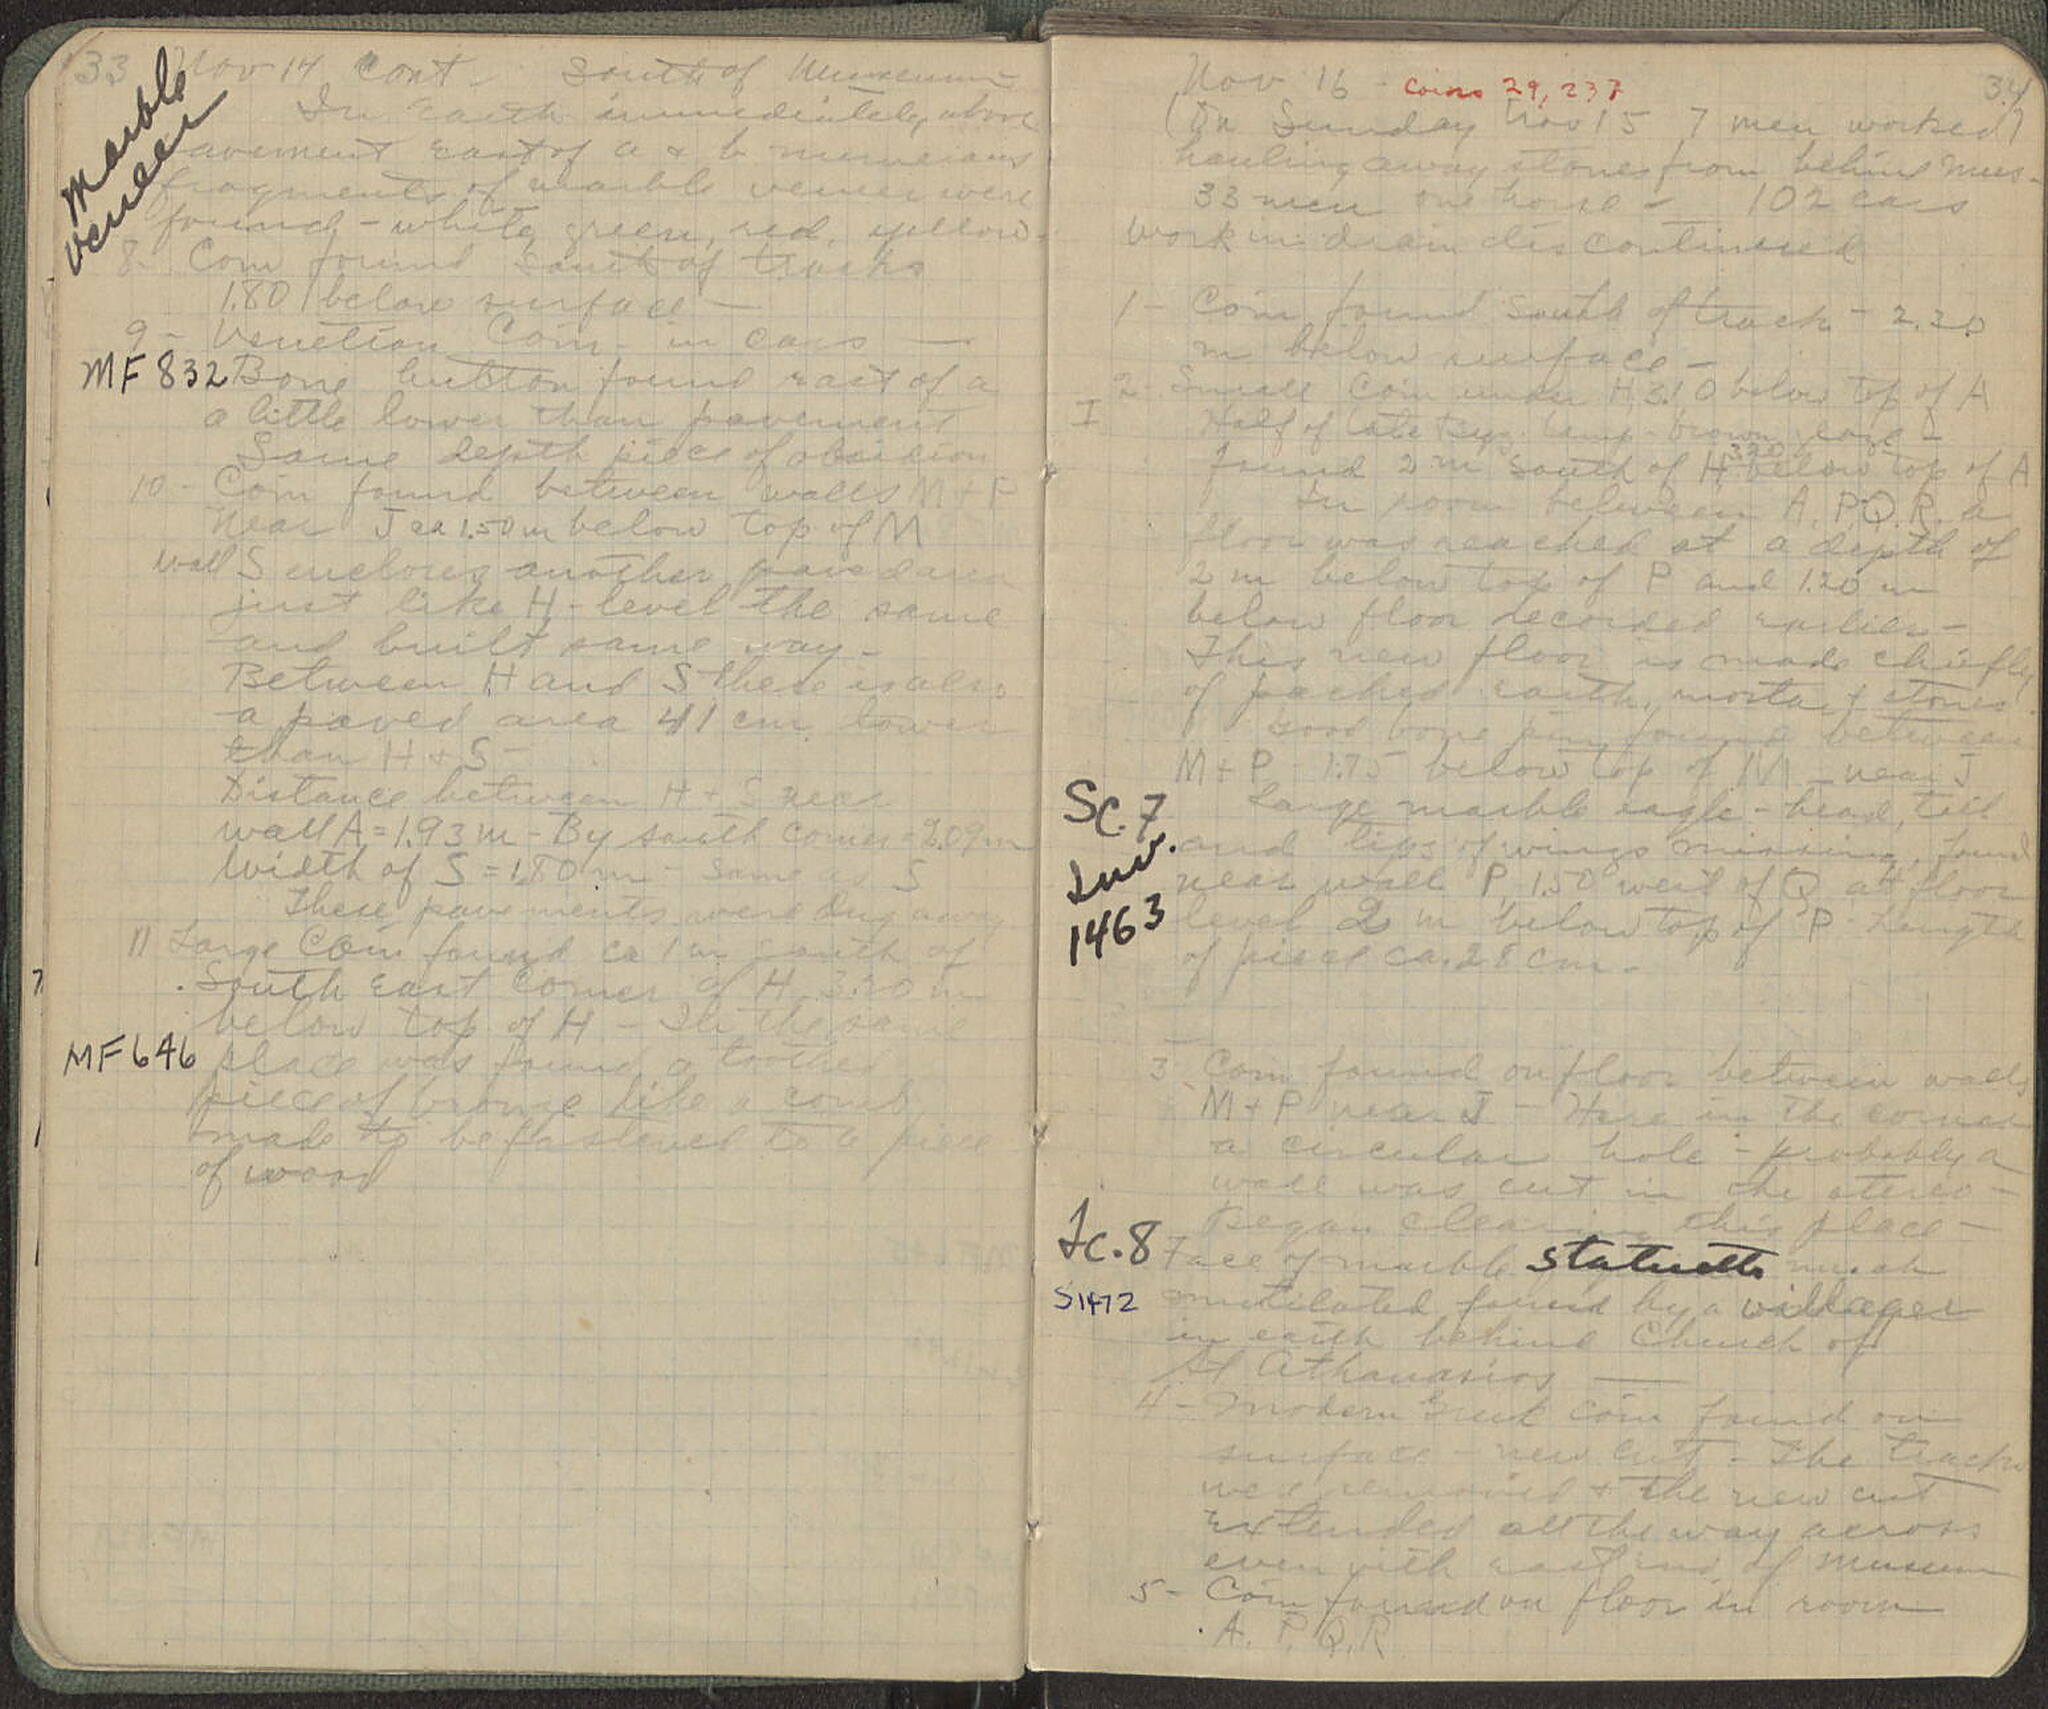 33 Nov 14 Cont - South of Museum
marble
veneer
In Earth immediately above
pavement east of a & b numerous
fragments of marble veneer were
found - white, green, red, yellow -
8 - Coin found south of tracks
1.80 below surface -
9 - Venetian Coin - in cars -
MF 832 Bone button found east of a
a little lower than pavement
Same depth piece of obsidian
10 - Coin found between walls M + P
near J ca 1.50 m below top of M
Wall S encloses another paved area
just like H - level the same
and built same way -
Between H and S there is also
a paved area 41 cm lower
than H + S -
Distance between H + S near
wall A = 1.93 m - By south corner = 2.09 m
Width of S = 1.80 m - Same as S
These pavements were dug away
11 Large Coin found ca 1 m south of
South East Corner of H 3.20 m
below top of H - In the same
MF 646 place was found a toothed
piece of bronze like a comb
made to be fastened to a piece
of wood
Nov 16 - Coins 29, 237 34
(On Sunday Nov 15 7 men worked)
hauling away stones from behind Mus -
33 men one horse - 102 cars
Work in drain discontinued
1 - Coin found south of track - 2.20
m below surface -
2 - Small Coin under H 3.10 below top of A
I Half of late Byz. lamp - brown glaze -
found 2 m south of H 3.20 below top of A
In room between A, P, Q, R, a
floor was reached at a depth of
2 m below top of P and 1.20 m
below floor recorded earlier -
This new floor is made chiefly
of packed earth, mortar & stones.
Good bone pin found between
M + P - 1.75 below top of M - near J
Sc. 7 Large marble eagle - head, tail
Inv. and tips of wings missing, found
near wall P, 1.50 west of Q at floor
1463 level 2 m below top of P Length
of piece ca. 28 cm -
3 - Coin found on floor between walls
M + P near J - Here in the corner
a circular hole - probably a
well was cut in the stereo -
Began clearing this place -
Sc. 8 Face of marble statuette much
S 1472 mutilated found by a villager
in earth behind Church of
St Athanasios -
4 - Modern Greek coin found on
surface - new cut - The tracks
were removed & the new cut
extended all the way across
even with east end of museum
5 - Coin found on floor in room
A. P. Q. R